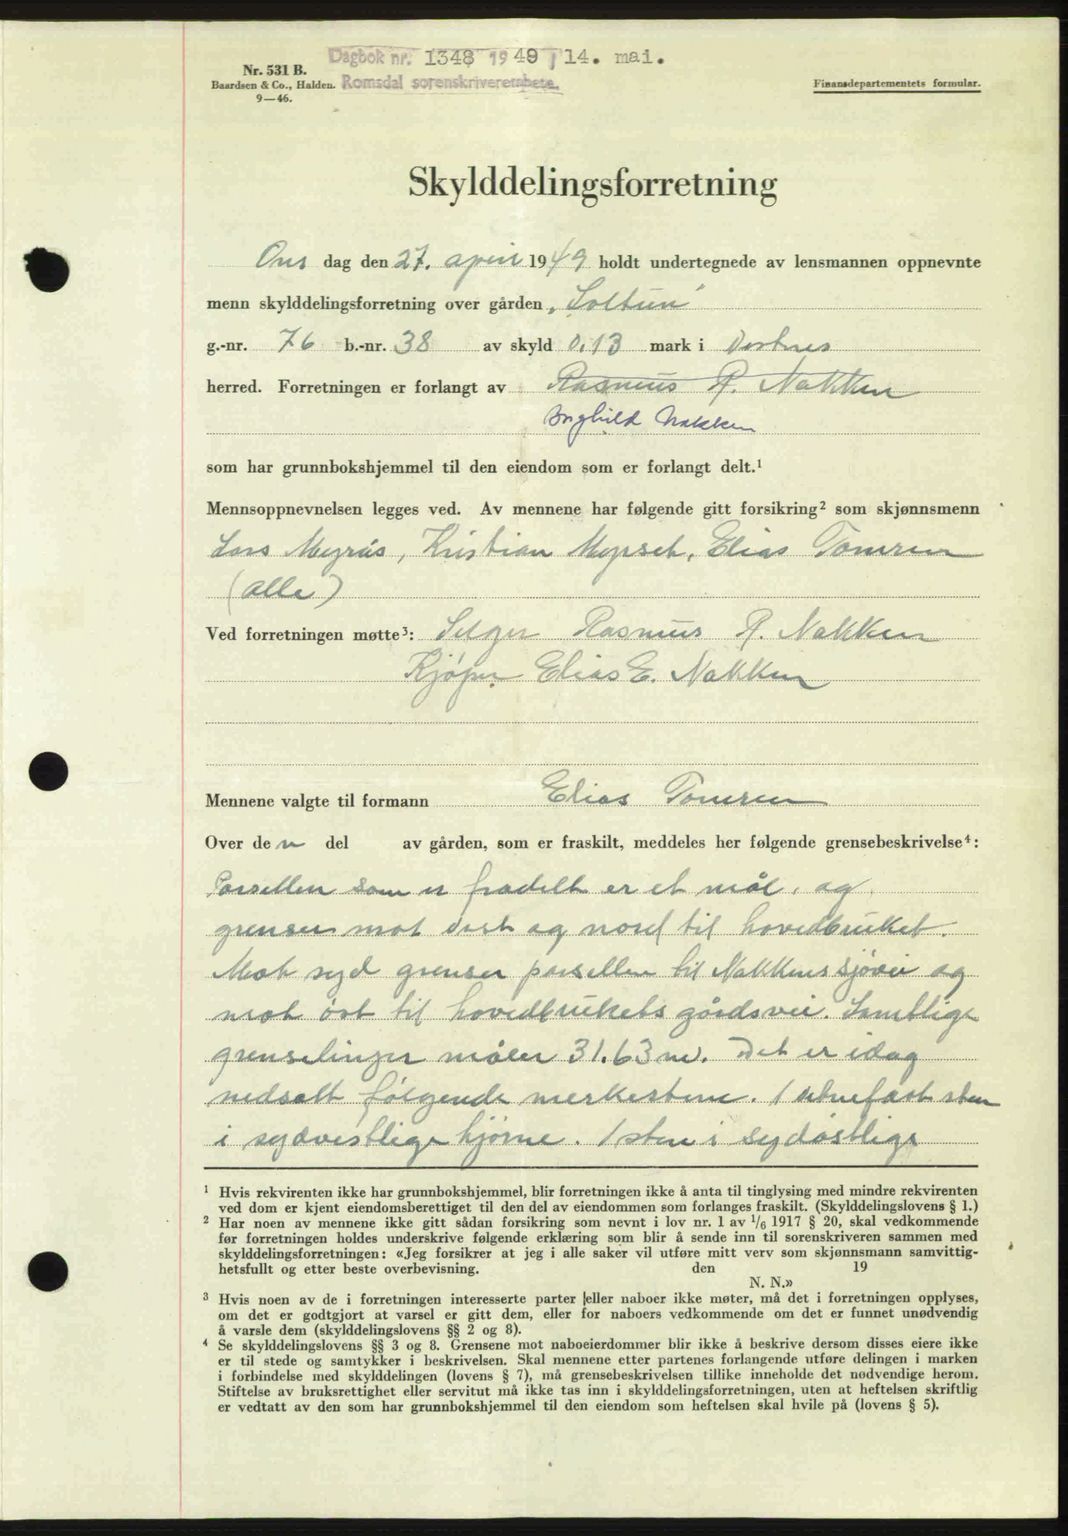 Dagbok nr. 1348 1949 / 14. mai.
Romsdal sorenskriverembete.
Nr. 531 B.
Baardsen & Co., Halden.
9—46.
Finansdepartementets formular.
Skylddelingsforretning
Ons dag den 27. april 1949 holdt undertegnede av lensmannen oppnevnte
menn skylddelingsforretning over gården „Soltun"
g.-nr. 76 b.-nr. 38 av skyld 0.13 mark i Vestnes
herred. Forretningen er forlangt av Rasmus R. Nakken
Inghild Nakken
som har grunnbokshjemmel til den eiendom som er forlangt delt.¹
Mennsoppnevnelsen legges ved. Av mennene har følgende gitt forsikring² som skjønnsmenn
Lars Myrås, Kristian Myrset, Elias Tomren
(alle)
Ved forretningen møtte³: Selger Rasmus R. Nakken
Kjøper Elias E. Nakken
Mennene valgte til formann Elias Tomren
Over den del av gården, som er fraskilt, meddeles her følgende grensebeskrivelse⁴:
Parsellen som er fradelt er et mål, og
grenser mot vest og nord til hovedbruket.
Mot syd grenser parsellen til Nakkens sjøvei og
mot øst til hovedbrukets gårdsvei. Samtlige
grenselinjer måler 31.63 m. Det er idag
nedsatt følgende merkestene. 1 stein
i sydvestlige hjørne. 1 sten i sydøstlige
¹ Hvis rekvirenten ikke har grunnbokshjemmel, blir forretningen ikke å anta til tinglysing med mindre rekvirenten
ved dom er kjent eiendomsberettiget til den del av eiendommen som forlanges fraskilt. (Skylddelingslovens § 1.)
² Har noen av mennene ikke gitt sådan forsikring som nevnt i lov nr. 1 av 1/6 1917 § 20, skal vedkommende
før forretningen holdes underskrive følgende erklæring som blir å sende inn til sorenskriveren sammen med
skylddelingsforretningen: «Jeg forsikrer at jeg i alle saker vil utføre mitt verv som skjønnsmann samvittig-
hetsfullt og etter beste overbevisning. den 19
N. N.»
³ Hvis noen av de i forretningen interesserte parter eller naboer ikke møter, må det i forretningen opplyses,
om det er godtgjort at varsel er gitt dem, eller for naboers vedkommende om det er funnet unødvendig
å varsle dem (skylddelingslovens §§ 2 og 8).
⁴ Se skylddelingslovens §§ 3 og 8. Grensene mot naboeierdommer blir ikke å beskrive dersom disses eiere ikke
er til stede og samtykker i beskrivelsen. Skal mennene etter partenes forlangende utføre delingen i marken
i forbindelse med skylddelingen (lovens § 7), må grensebeskrivelsen tillike inneholde det nødvendige herom.
Stiftelse av bruksrettighet eller servitut må ikke tas inn i skylddelingsforretningen, uten at heftelsen skriftlig
er vedtatt av den som har grunnbokshjemmel til den eiendom som heftelsen skal hvile på (lovens § 5).